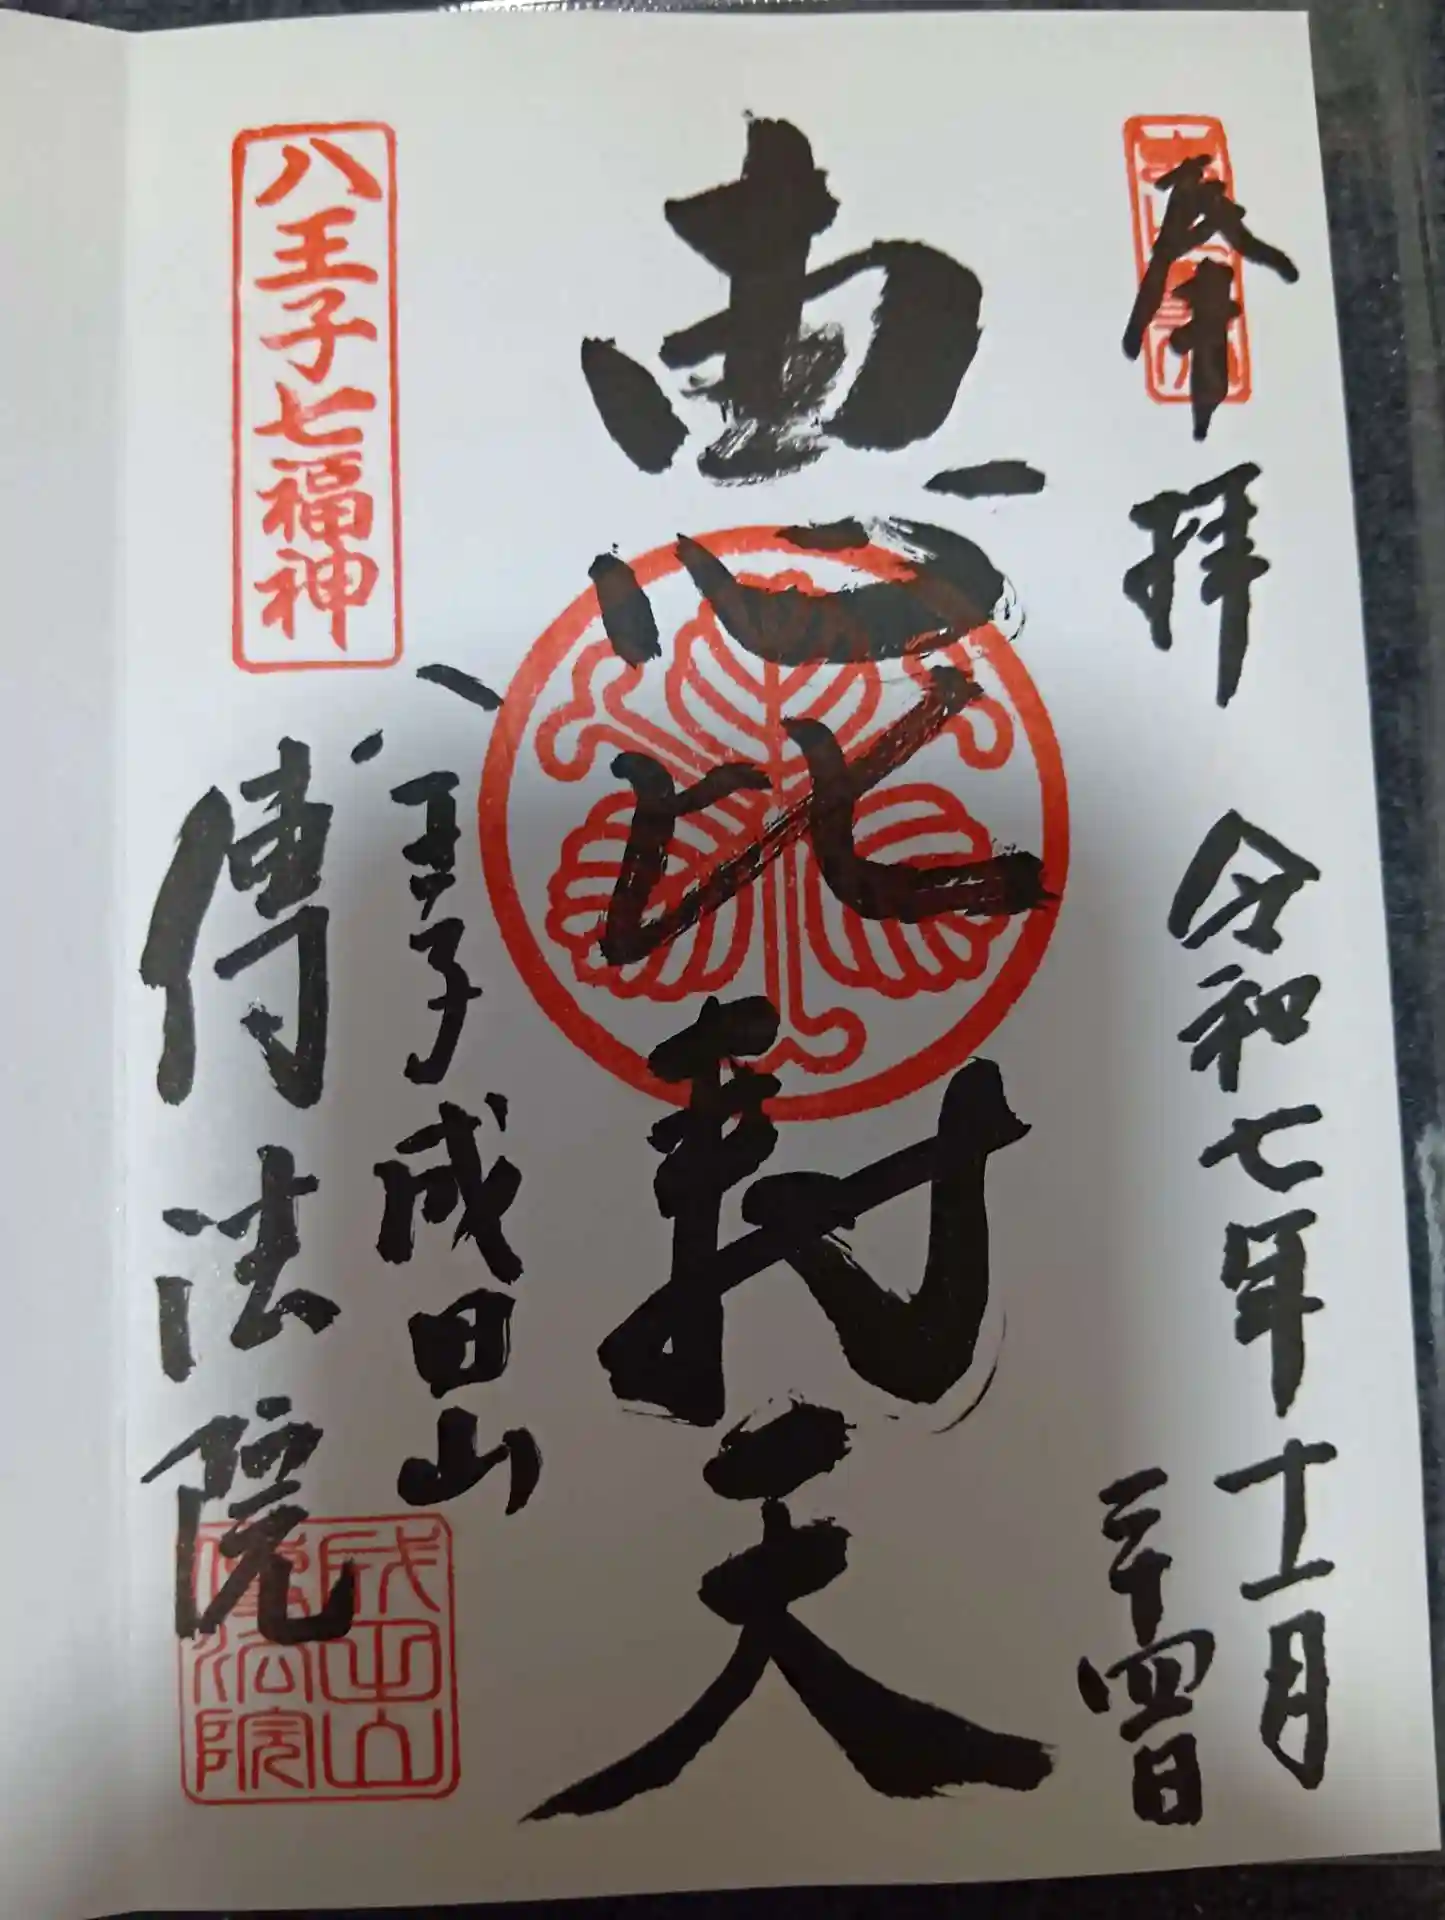 奉拝
令和七年十一月
二十四日
恵比寿天
八王子七福神
八王子成田山
傳法院
成田山
傳法院